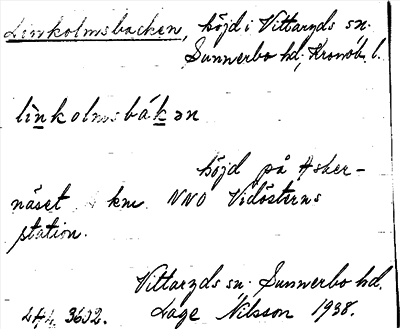 Linkolmsbacken, höjd i Vittaryds sn.
Sunnerbo hd, Kronob. l.
lìnkolmsbákən
höjd på Asker-
näset km NNO Vidösterns
station.
Vittaryds sn. Sunnerbo hd.
3602. Lage Nilsson 1938.